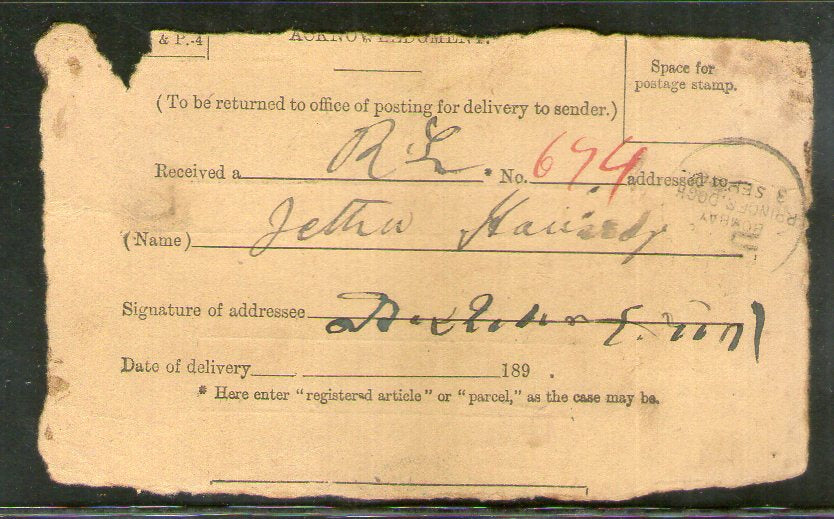 & P.-4
ACKNOWLEDGMENT.
Space for
postage stamp.
(To be returned to office of posting for delivery to sender.)
Received a R L * No. 694 addressed to
3 SEP
PRINCE'S DOCK
BOMBAY
(Name) Jetha
Signature of addressee
Date of delivery 189 .
* Here enter "registered article" or "parcel," as the case may be.